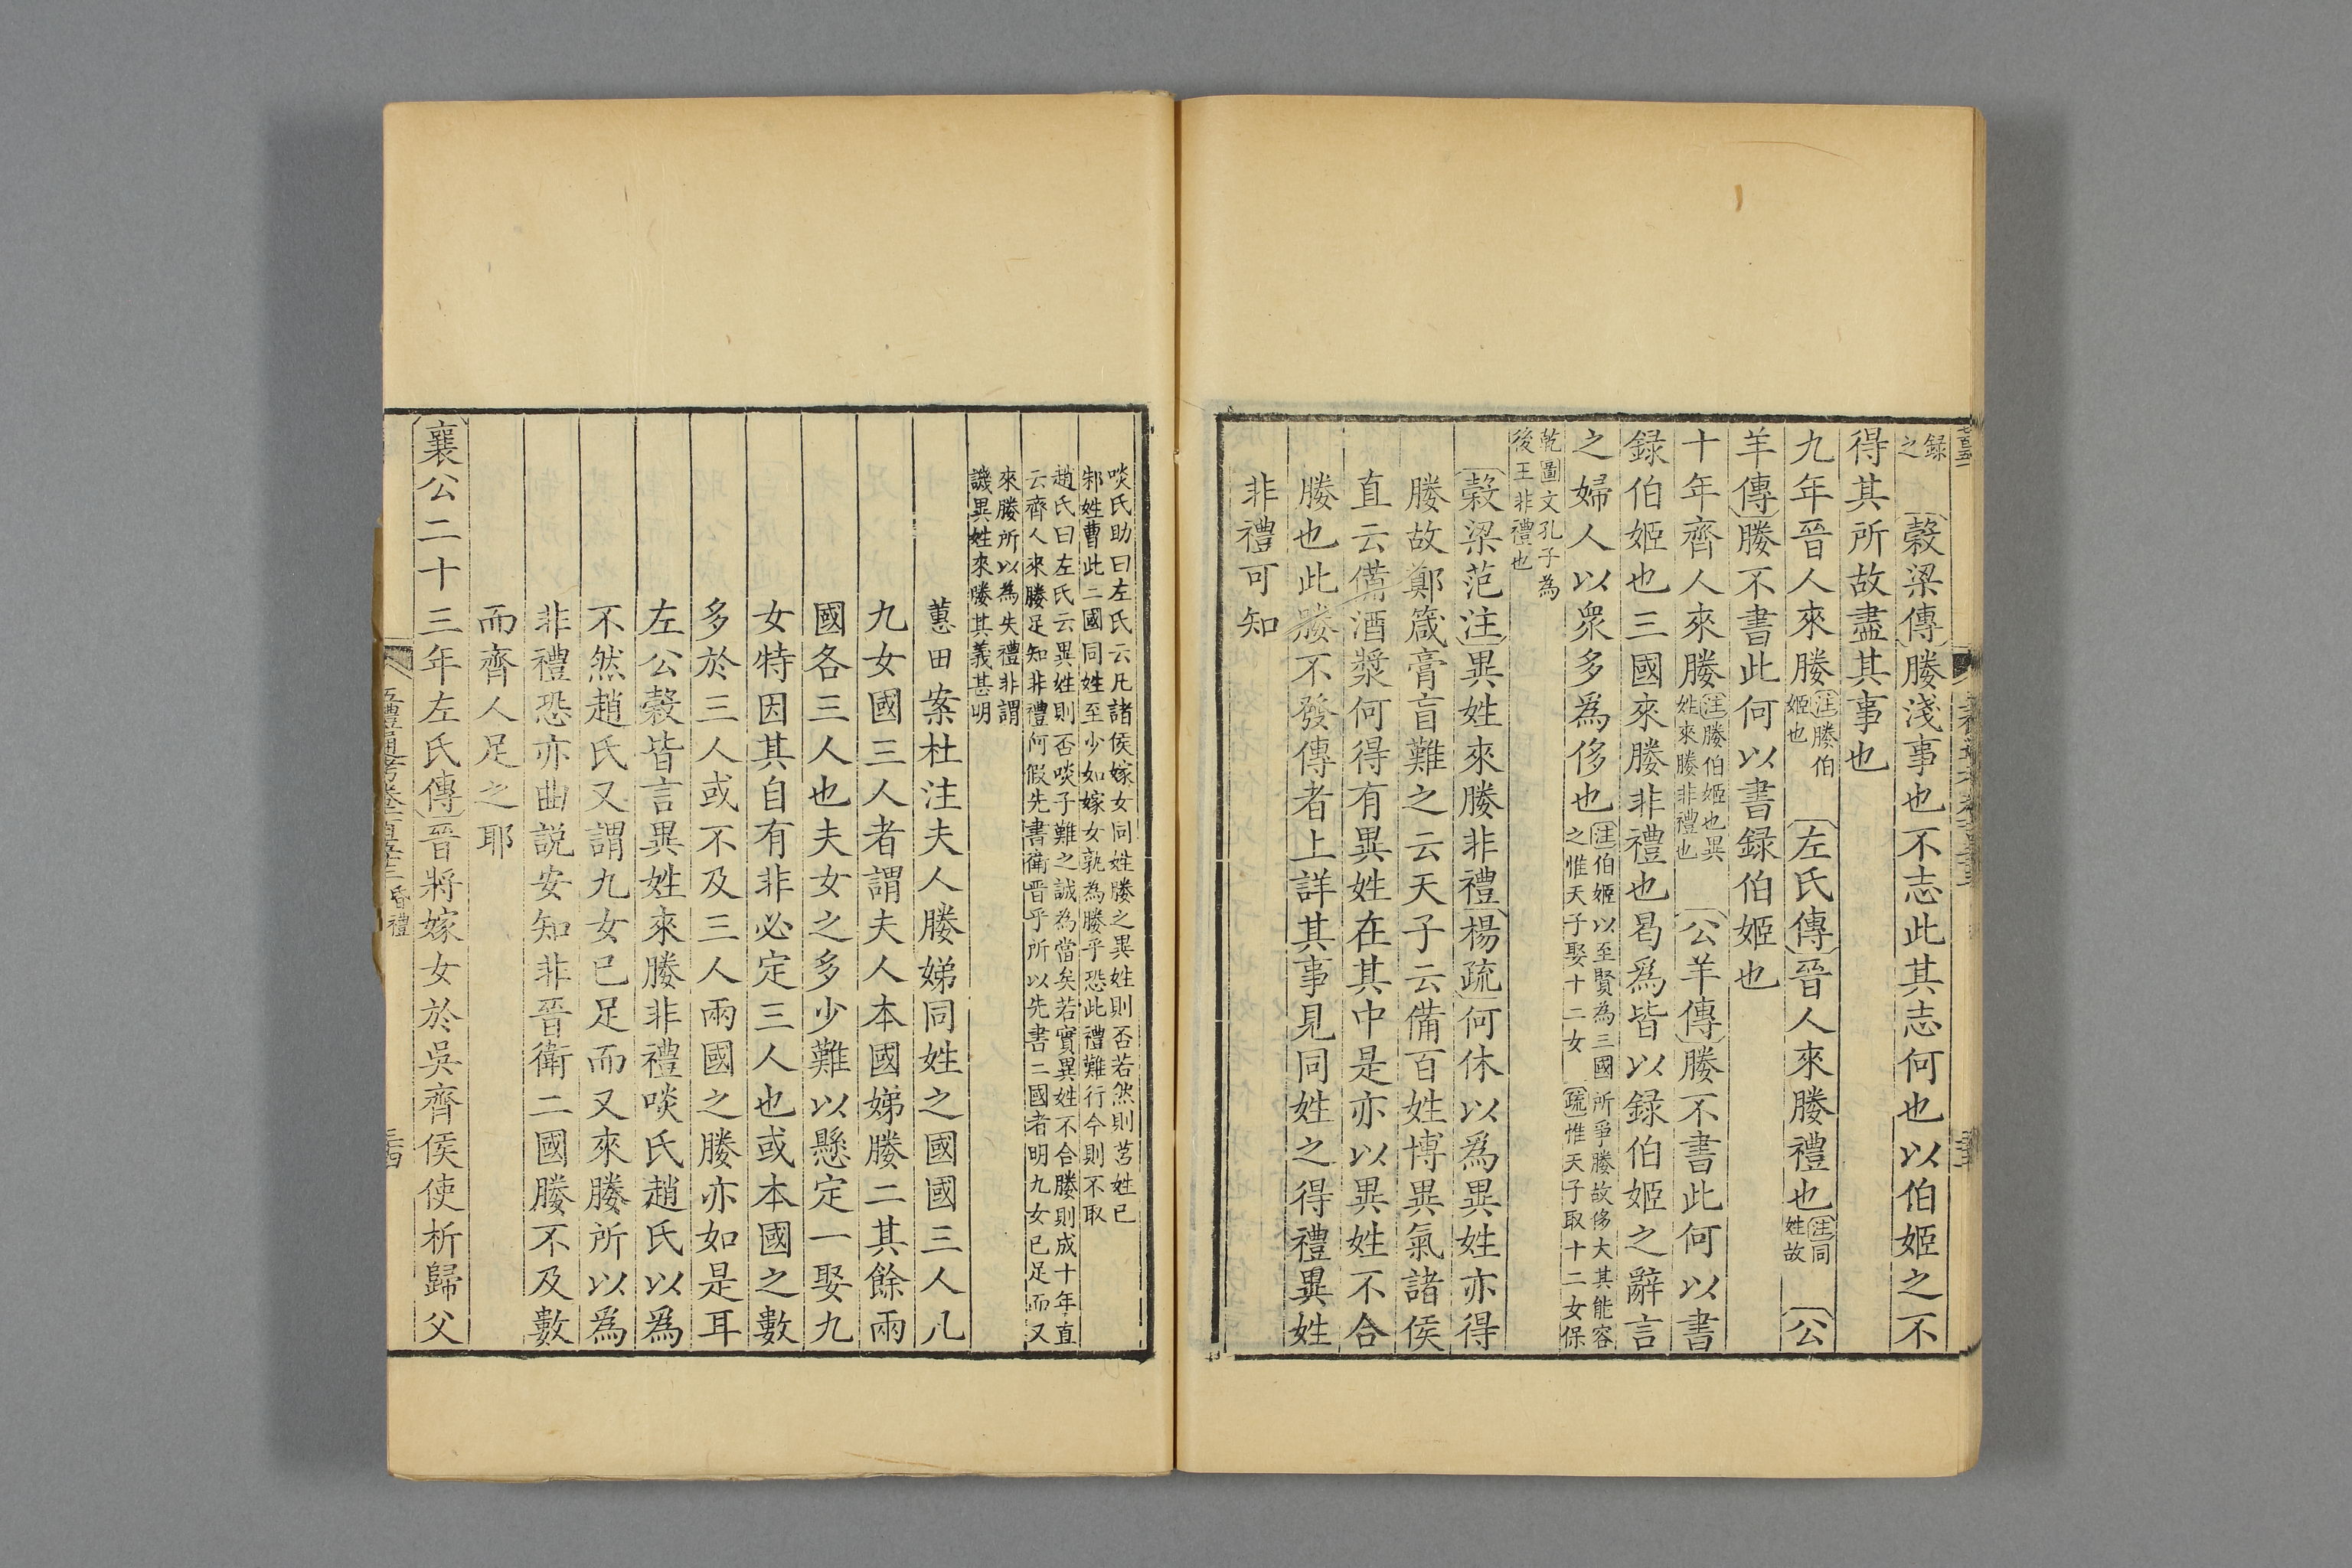 錄之穀梁傳媵淺事也不志此其志何也以伯姬之不
得其所故盡其事也
九年晉人來媵注媵伯姬也左氏傳晉人來媵禮也注同姓故公
羊傳媵不書此何以書録伯姬也
十年齊人來媵注媵伯姬也異姓來媵非禮也公羊傳媵不書此何以書
録伯姬也三國來媵非禮也曷爲皆以録伯姬之辭言
之婦人以衆多爲侈也注伯姬以至賢為三國所爭媵故侈大其能容之惟天子娶十二女疏惟天子取十二女保
乾圖文孔子為後王非禮也
穀梁范注異姓來媵非禮楊疏何休以爲異姓亦得
媵故鄭箴膏盲難之云天子云備百姓博異氣諸侯
直云備酒漿何得有異姓在其中是亦以異姓不合
媵也此媵不發傳者上詳其事見同姓之得禮異姓
非禮可知
啖氏助曰左氏云凡諸侯嫁女同姓媵之異姓則否若然則莒姓已
邾姓曹此二國同姓至少如嫁女孰為媵乎恐此禮難行今則不取
趙氏曰左氏云異姓則否啖子難之誠為當矣若實異姓不合媵則成十年直
云齊人來媵足知非禮何假先書衛晉乎所以先書二國者明九女已足而又
來媵所以為失禮非謂
譏異姓來媵其義甚明
蕙田案杜注夫人媵娣同姓之國國三人凡
九女國三人者謂夫人本國娣媵二其餘兩
國各三人也夫女之多少難以懸定一娶九
女特因其自有非必定三人也或本國之數
多於三人或不及三人兩國之媵亦如是耳
左公穀皆言異姓來媵非禮啖氏趙氏以爲
不然趙氏又謂九女已足而又來媵所以爲
非禮恐亦曲説安知非晉衛二國媵不及數
而齊人足之耶
襄公二十三年左氏傳晉將嫁女於吳齊侯使析歸父
五禮通考卷一百五十三 昏禮 三十四